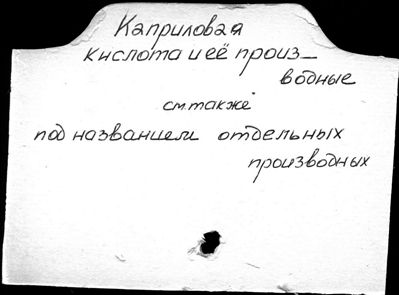 Каприловая
кислота и её произ-
водные
см. также
под названием отдельных
производных